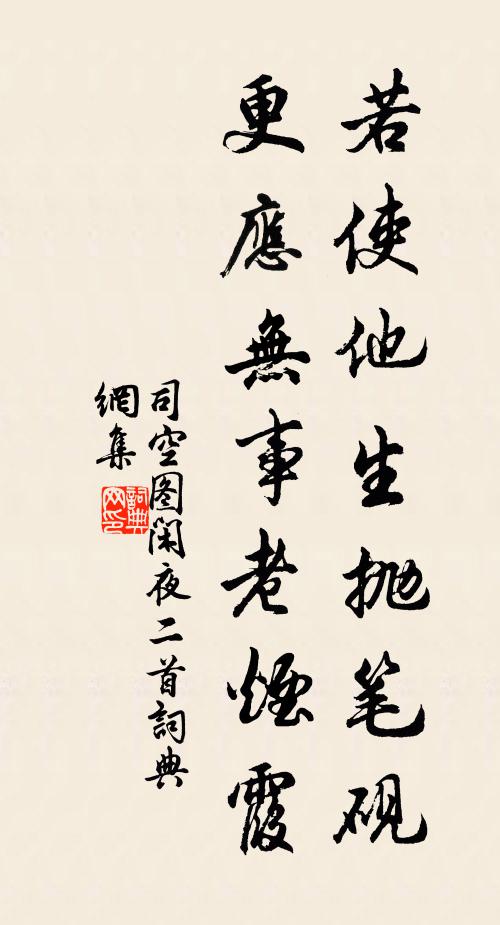 若使他生抛笔硯
更應無事老煙霞
司空图閑夜二首詞典
網集
詞典
网印